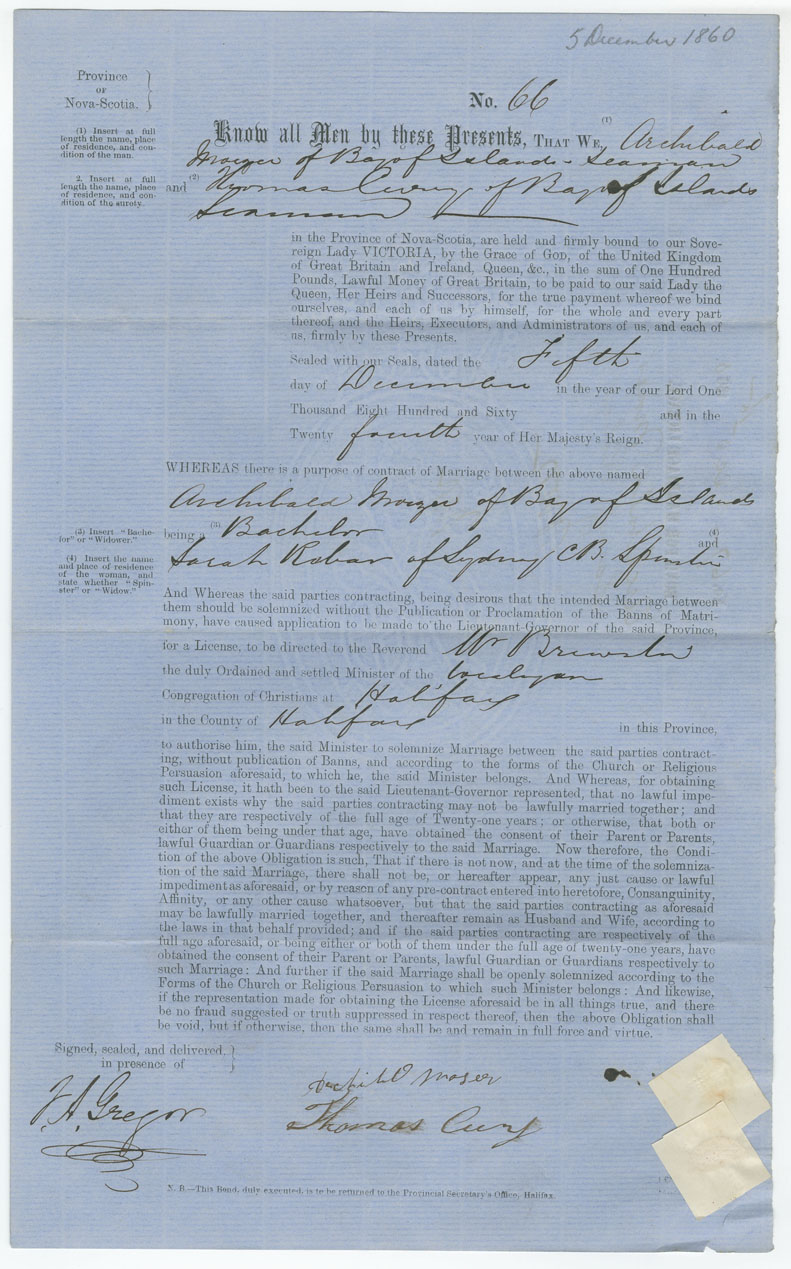 5 December 1860
Province
OF
Nova-Scotia.
No. 66
(1) Insert at full
length the name, place
of residence, and con-
dition of the man.
2. Insert at full
length the name, place
of residence, and con-
dition of the surety.
Know all Men by these Presents, THAT WE, (1) Archibald
Mozer of Bay of Islands - Seaman
and (2) Thomas Curry of Bay of Islands
Seaman
in the Province of Nova-Scotia, are held and firmly bound to our Sove-
reign Lady VICTORIA, by the Grace of GOD, of the United Kingdom
of Great Britain and Ireland, Queen, &c., in the sum of One Hundred
Pounds, Lawful Money of Great Britain, to be paid to our said Lady the
Queen, Her Heirs and Successors, for the true payment whereof we bind
ourselves, and each of us by himself, for the whole and every part
thereof, and the Heirs, Executors, and Administrators of us, and each of
us, firmly by these Presents.
Sealed with our Seals, dated the Fifth
day of December in the year of our Lord One
Thousand Eight Hundred and Sixty and in the
Twenty fourth year of Her Majesty's Reign.
WHEREAS there is a purpose of contract of Marriage between the above named
Archibald Mozer of Bay of Islands
(3) Insert "Bache-
lor" or "Widower."
being a (3) Bachelor and (4)
(4) Insert the name
and place of residence
of the woman, and
state whether "Spin-
ster" or "Widow."
Sarah Robar of Sydney CB. Spinster
And Whereas the said parties contracting, being desirous that the intended Marriage between
them should be solemnized without the Publication or Proclamation of the Banns of Matri-
mony, have caused application to be made to the Lieutenant-Governor of the said Province,
for a License, to be directed to the Reverend Mr Brewster
the duly Ordained and settled Minister of the Wesleyan
Congregation of Christians at Halifax
in the County of Halifax in this Province,
to authorise him, the said Minister to solemnize Marriage between the said parties contract-
ing, without publication of Banns, and according to the forms of the Church or Religious
Persuasion aforesaid, to which he, the said Minister belongs. And Whereas, for obtaining
such License, it hath been to the said Lieutenant-Governor represented, that no lawful impe-
diment exists why the said parties contracting may not be lawfully married together; and
that they are respectively of the full age of Twenty-one years; or otherwise, that both or
either of them being under that age, have obtained the consent of their Parent or Parents,
lawful Guardian or Guardians respectively to the said Marriage. Now therefore, the Condi-
tion of the above Obligation is such, That if there is not now, and at the time of the solemniza-
tion of the said Marriage, there shall not be, or hereafter appear, any just cause or lawful
impediment as aforesaid, or by reason of any pre-contract entered into heretofore, Consanguinity,
Affinity, or any other cause whatsoever, but that the said parties contracting as aforesaid
may be lawfully married together, and thereafter remain as Husband and Wife, according to
the laws in that behalf provided; and if the said parties contracting are respectively of the
full age aforesaid, or being either or both of them under the full age of twenty-one years, have
obtained the consent of their Parent or Parents, lawful Guardian or Guardians respectively to
such Marriage: And further if the said Marriage shall be openly solemnized according to the
Forms of the Church or Religious Persuasion to which such Minister belongs: And likewise,
if the representation made for obtaining the License aforesaid be in all things true, and there
be no fraud suggested or truth suppressed in respect thereof, then the above Obligation shall
be void, but if otherwise, then the same shall be and remain in full force and virtue.
Signed, sealed, and delivered,
in presence of
Archibld Moser
J. A. Gregor
Thomas Cury
N. B.—This Bond, duly executed, is to be returned to the Provincial Secretary's Office, Halifax.